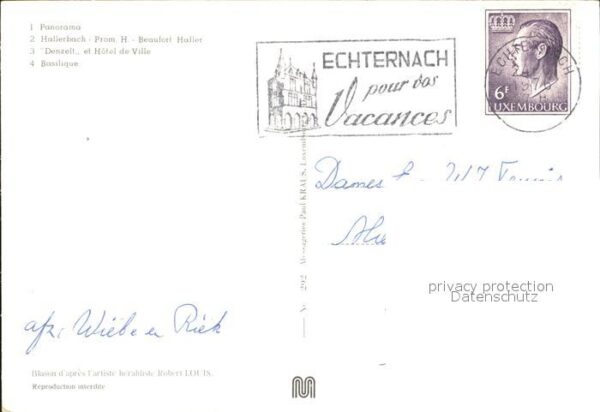 1 Panorama
2 Hallerbach - Prom. H. - Beaufort Haller
3 "Denzelt„ et Hôtel de Ville
4 Basilique
ECHTERNACH
pour vos
Vacances
ECHTERNACH
6F
LUXEMBOURG
Dames
privacy protection
Datenschutz
afz: Wiebe en Riek
Messageries Paul KRAUS, Luxembourg
Blason d'après l'artiste héraldiste Robert LOUIS.
Reproduction interdite